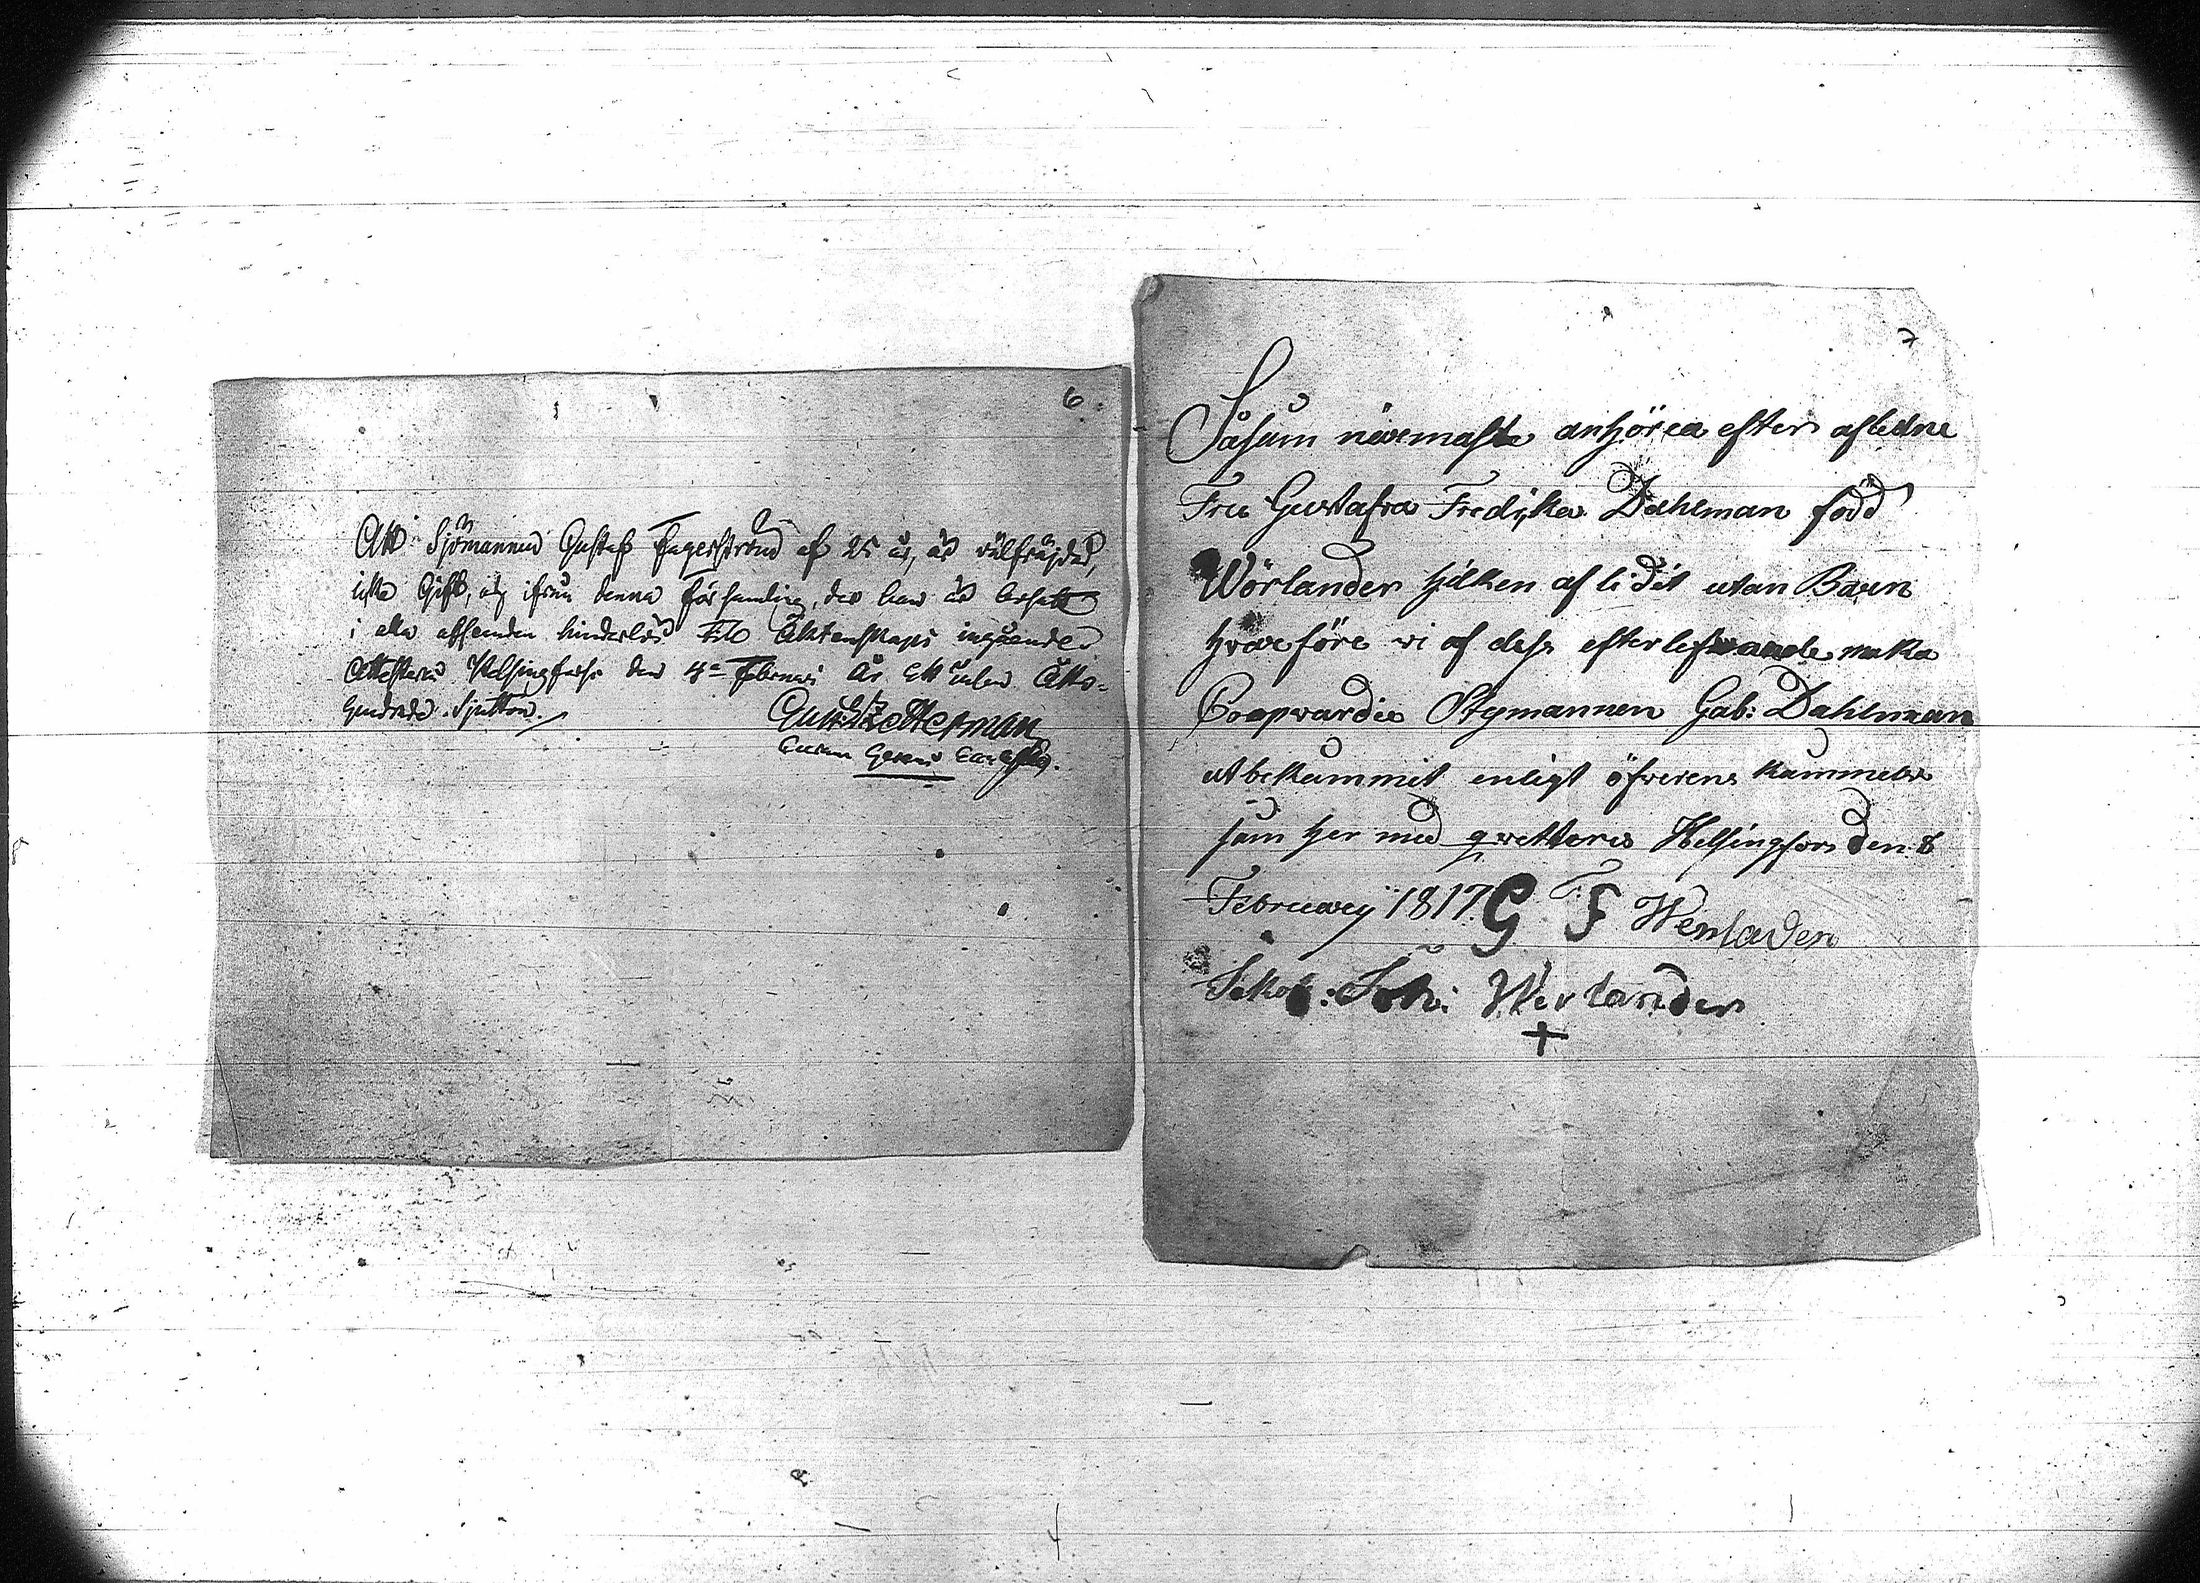 6.
Att Sjömannen Gustaf Fagerström af 25 år, är välfräjdad,
icke Gift, ej ifrån denna församling, der han är
i alla afseenden hinderlös till Äktenskaps ingående
Attesterar Helsingfors den 4de Februari År Ett tusen Åtta-
hundrade Sjutton.
Gust: Zetterman
7
Såsum närmaste anhöriga efter afledne
Fru Gustafva Fredrika Dahlman född
Wörlander hvilken aflidit utan Barn
hvarföre vi af dess efterlefwande maka
Coopvardie Stymannen Gab: Dahlman
utbekummit enligt öfverens kummelse
sum her med qvitteras Helsingfors den 8
Februarij 1817 G F Werlander
Jakob: Joh: Werlander
+